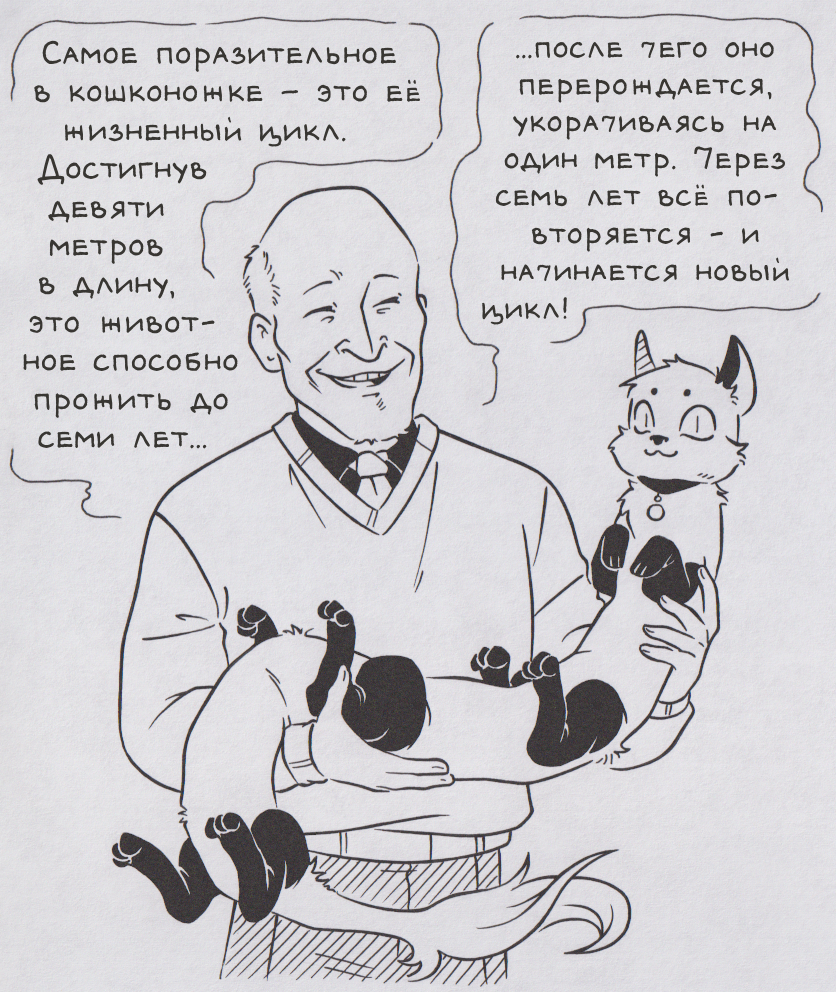 Самое поразительное
в кошконожке – это её
жизненный цикл.
Достигнув
девяти
метров
в длину,
это живот-
ное способно
прожить до
семи лет...
...после чего оно
перерождается,
укорачиваясь на
один метр. Через
семь лет всё по-
вторяется – и
начинается новый
цикл!